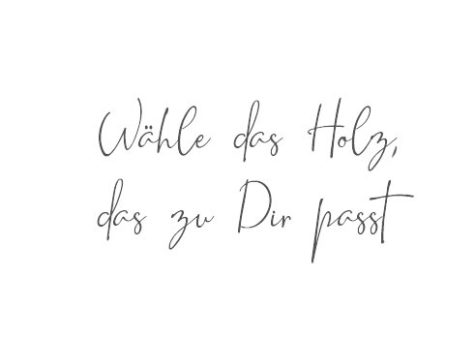 Wähle das Holz,
das zu Dir passt